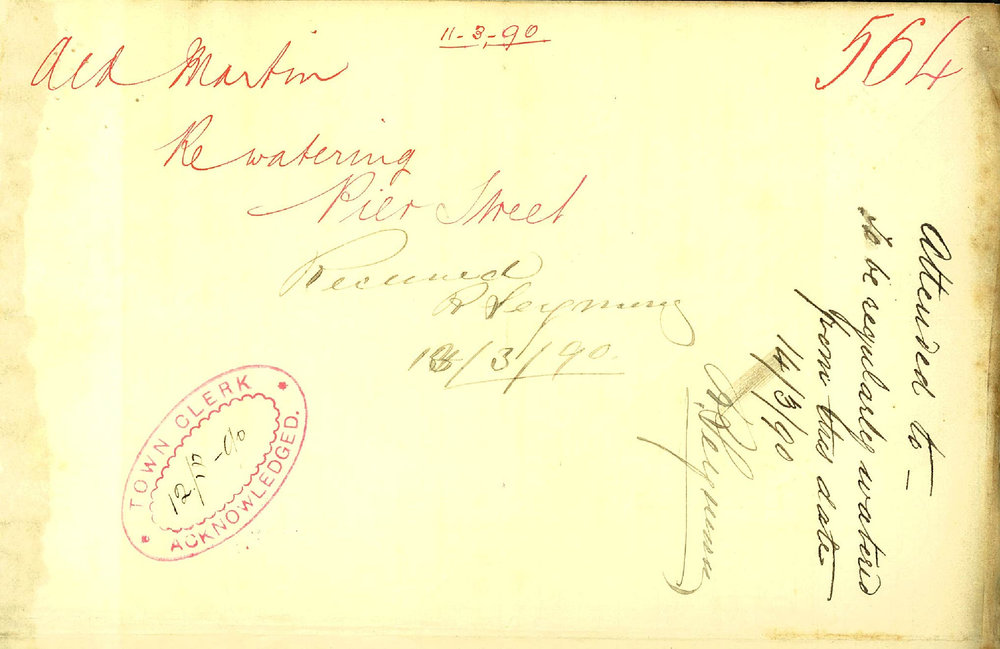 11-3-90
564
Ald Martin
Re watering
Pier Street
Received
R Seymour
13/3/90.
TOWN CLERK
12/3-90
ACKNOWLEDGED.
Attended to
to be regularly watered
from this date
14/3/90
R Seymour